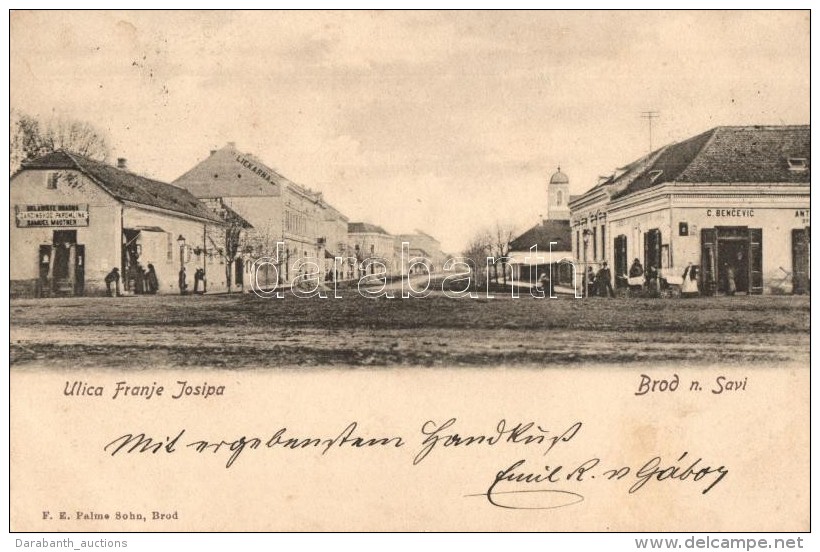 LJEKARNA
SKLADIŠTE BRAŠNA
SAMUEL MAUTNER
C. BENČEVIĆ
ANT
darabanth
Ulica Franje Josipa
Brod n. Savi
Mit ergebenstem Handkuß
Emil R. v Gábor
F. E. Palme Sohn, Brod
Darabanth_auctions
www.delcampe.net